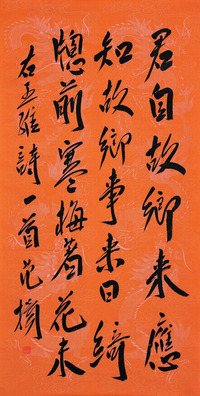 君自故鄉来應
知故鄉事来日綺
牕前寒梅著花未
右王維詩一首